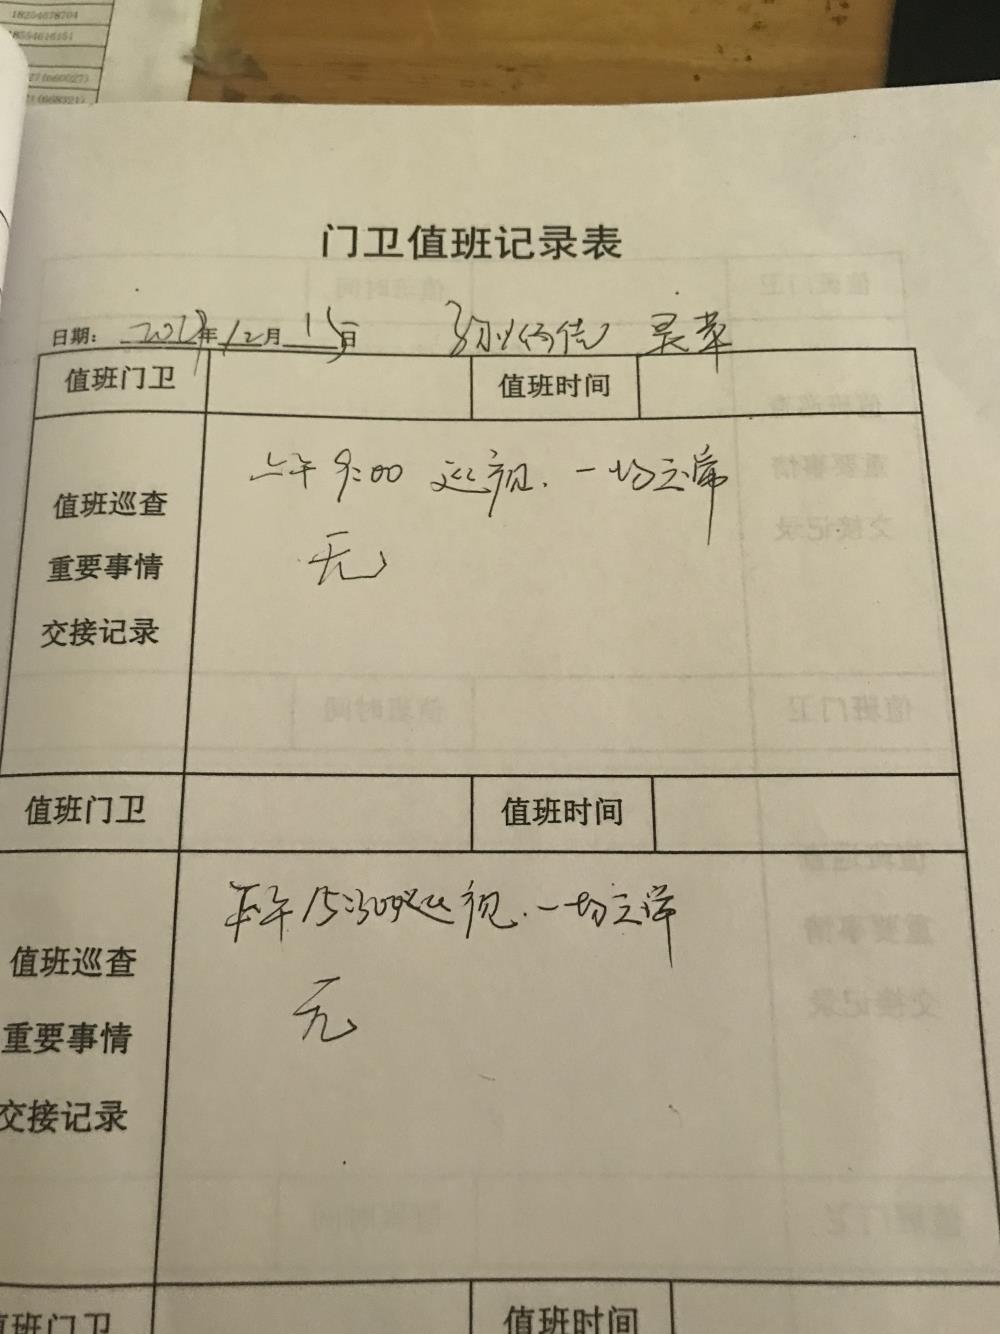 18254678704
18554616151
27(660027)
21(668321)
门卫值班记录表
日期: 年12月15日 吴苹
值班门卫 值班时间
值班巡查
重要事情
交接记录
上午9:00 巡视. 一切正常
无
值班门卫 值班时间
值班巡查
重要事情
交接记录
下午15:30 巡视. 一切正常
无
值班门卫 值班时间